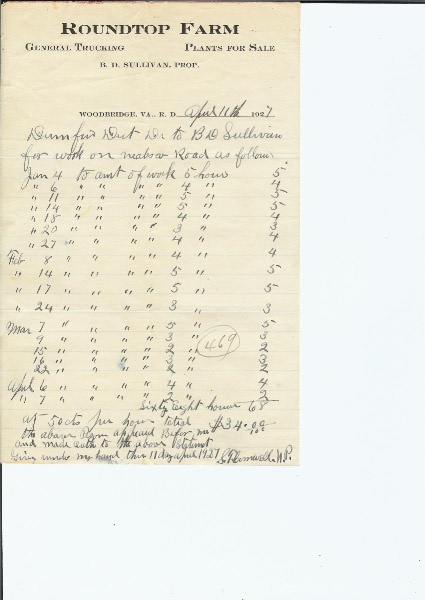 ROUNDTOP FARM
GENERAL TRUCKING PLANTS FOR SALE
B. D. SULLIVAN, PROP.
WOODBRIDGE, VA., R. D. April 11th 1927
Dumfris Dist Dr to B D Sullivan
for work on Road as follow
Jan 4 to amt of work 5 hour 5
" 6 " " " " 4 " 4
" 11 " " " " 5 " 5
" 14 " " " " 5 " 5
" 18 " " " " 4 " 4
" 20 " " " " 3 " 3
" 27 " " " " 4 " 4
Feb 8 " " " " 4 " 4
" 14 " " " " 5 " 5
" 17 " " " " 5 " 5
" 24 " " " " 3 " 3
Mar 7 " " " " 5 " 5
9 " " " " 3 " 3
15 " " " " 2 " 2
16 " " " " 3 " 3
22 " " " " 2 " 2
469
April 6 " " " " 4 " 4
" 7 " " " " 2 " 2
Sixty eight hours 68
at 50cts per hour total $34.00
the above appeared Befor me
and made oath to the above
Given under my hand this 11 day april 1927